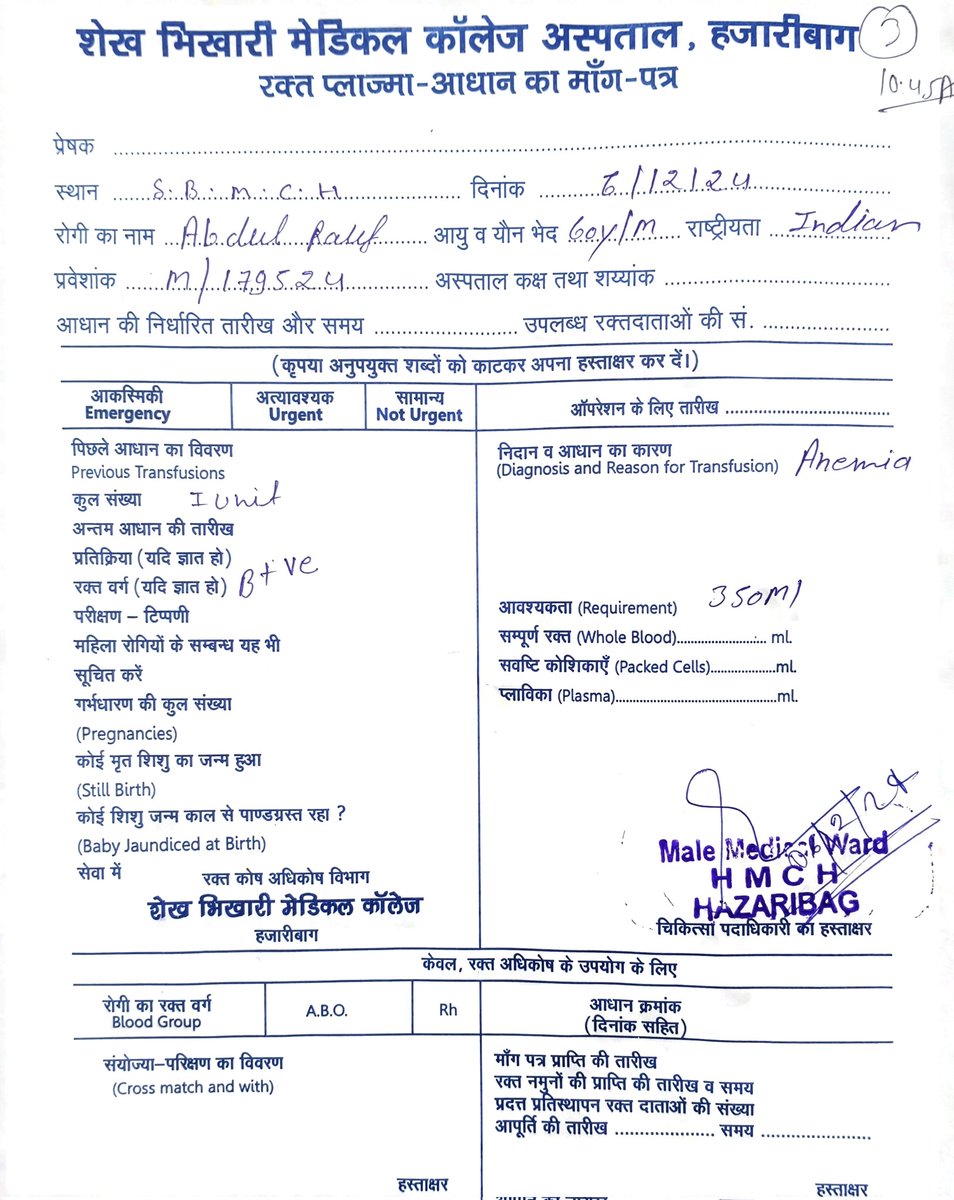 शेख भिखारी मेडिकल कॉलेज अस्पताल, हजारीबाग 3
रक्त प्लाज्मा-आधान का माँग-पत्र
10.45A
प्रेषक
स्थान S.B.M.C.H दिनांक 6/12/24
रोगी का नाम Abdul Rauf आयु व यौन भेद 60y/M राष्ट्रीयता Indian
प्रवेशांक M/179524 अस्पताल कक्ष तथा शय्यांक
आधान की निर्धारित तारीख और समय उपलब्ध रक्तदाताओं की सं.
(कृपया अनुपयुक्त शब्दों को काटकर अपना हस्ताक्षर कर दें।)
आकस्मिकी अत्यावश्यक सामान्य
Emergency Urgent Not Urgent
ऑपरेशन के लिए तारीख
पिछले आधान का विवरण
Previous Transfusions
कुल संख्या I Unit
अन्तम आधान की तारीख
प्रतिक्रिया (यदि ज्ञात हो)
रक्त वर्ग (यदि ज्ञात हो) B+ve
परीक्षण – टिप्पणी
महिला रोगियों के सम्बन्ध यह भी
सूचित करें
गर्भधारण की कुल संख्या
(Pregnancies)
कोई मृत शिशु का जन्म हुआ
(Still Birth)
कोई शिशु जन्म काल से पाण्डग्रस्त रहा ?
(Baby Jaundiced at Birth)
सेवा में
रक्त कोष अधिकोष विभाग
शेख भिखारी मेडिकल कॉलेज
हजारीबाग
निदान व आधान का कारण
(Diagnosis and Reason for Transfusion) Anemia
आवश्यकता (Requirement) 350ml
सम्पूर्ण रक्त (Whole Blood) ml.
सवष्टि कोशिकाएँ (Packed Cells) ml.
प्लाविका (Plasma) ml.
Male Medical Ward
H M C H
HAZARIBAG
चिकित्सा पदाधिकारी का हस्ताक्षर
केवल, रक्त अधिकोष के उपयोग के लिए
रोगी का रक्त वर्ग
Blood Group
A.B.O. Rh
आधान क्रमांक
(दिनांक सहित)
संयोज्या–परिक्षण का विवरण
(Cross match and with)
हस्ताक्षर
माँग पत्र प्राप्ति की तारीख
रक्त नमुनों की प्राप्ति की तारीख व समय
प्रदत्त प्रतिस्थापन रक्त दाताओं की संख्या
आपूर्ति की तारीख समय
हस्ताक्षर